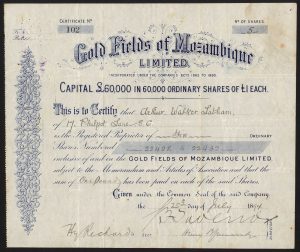 CERTIFICATE Nº
102
Nº OF SHARES
5
Gold Fields of Mozambique
LIMITED.
INCORPORATED UNDER THE COMPANIES ACTS 1862 TO 1890.
CAPITAL £60,000 IN 60,000 ORDINARY SHARES OF £1 EACH.
This is to Certify that Arthur Walter
of 17, Philpot Lane E.C.
is the Registered Proprietor of ORDINARY
Shares Numbered
inclusive of and in the GOLD FIELDS OF MOZAMBIQUE LIMITED.
subject to the Memorandum and Articles of Association and that the
sum of One Pound has been paid on each of the said Shares.
Given under the Common Seal of the said Company
July 1894